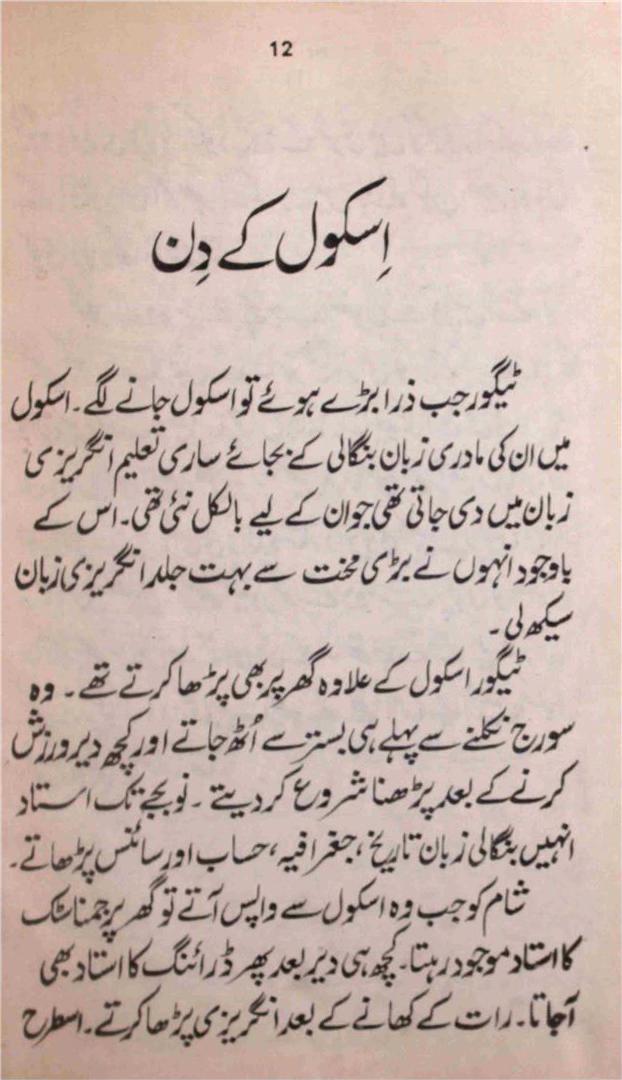 12
اِسکول کے دِن
ٹیگور جب ذرا بڑے ہوئے تو اسکول جانے لگے۔ اسکول
میں ان کی مادری زبان بنگالی کے بجائے ساری تعلیم انگریزی
زبان میں دی جاتی تھی جو ان کے لیے بالکل نئی تھی۔ اس کے
باوجود انہوں نے بڑی محنت سے بہت جلد انگریزی زبان
سیکھ لی۔
ٹیگور اسکول کے علاوہ گھر پر بھی پڑھا کرتے تھے۔ وہ
سورج نکلنے سے پہلے ہی بستر سے اُٹھ جاتے اور کچھ دیر ورزش
کرنے کے بعد پڑھنا شروع کر دیتے۔ نو بجے تک استاد
انہیں بنگالی زبان تاریخ، جغرافیہ، حساب اور سائنس پڑھاتے۔
شام کو جب وہ اسکول سے واپس آتے تو گھر پر جمناسٹک
کا استاد موجود رہتا۔ کچھ ہی دیر بعد پھر ڈرائنگ کا استاد بھی
آجاتا۔ رات کے کھانے کے بعد انگریزی پڑھا کرتے۔ اسطرح